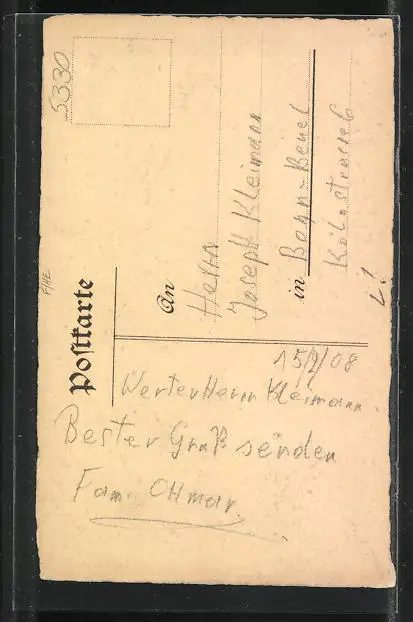 5330
Postkarte
F/HE
15/2/08
Werter Herrn Kleimann
Bester Gruß senden
Fam. Ottmar
An
Herrn
Joseph Kleimann
in Bonn-Beuel
Kölnstrasse 6